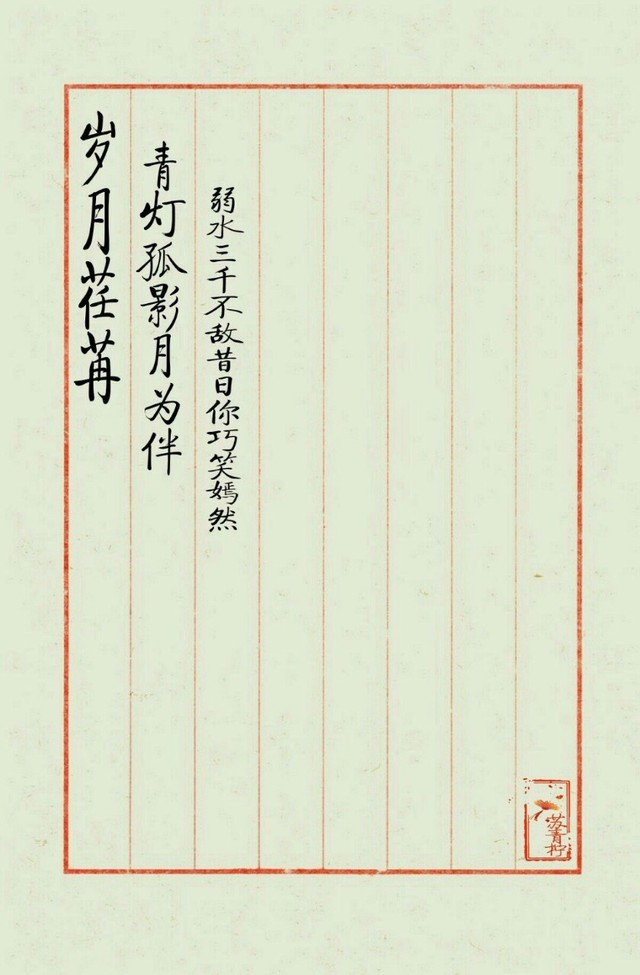 岁月荏苒
青灯孤影月为伴
弱水三千不敌昔日你巧笑嫣然
苏青柠